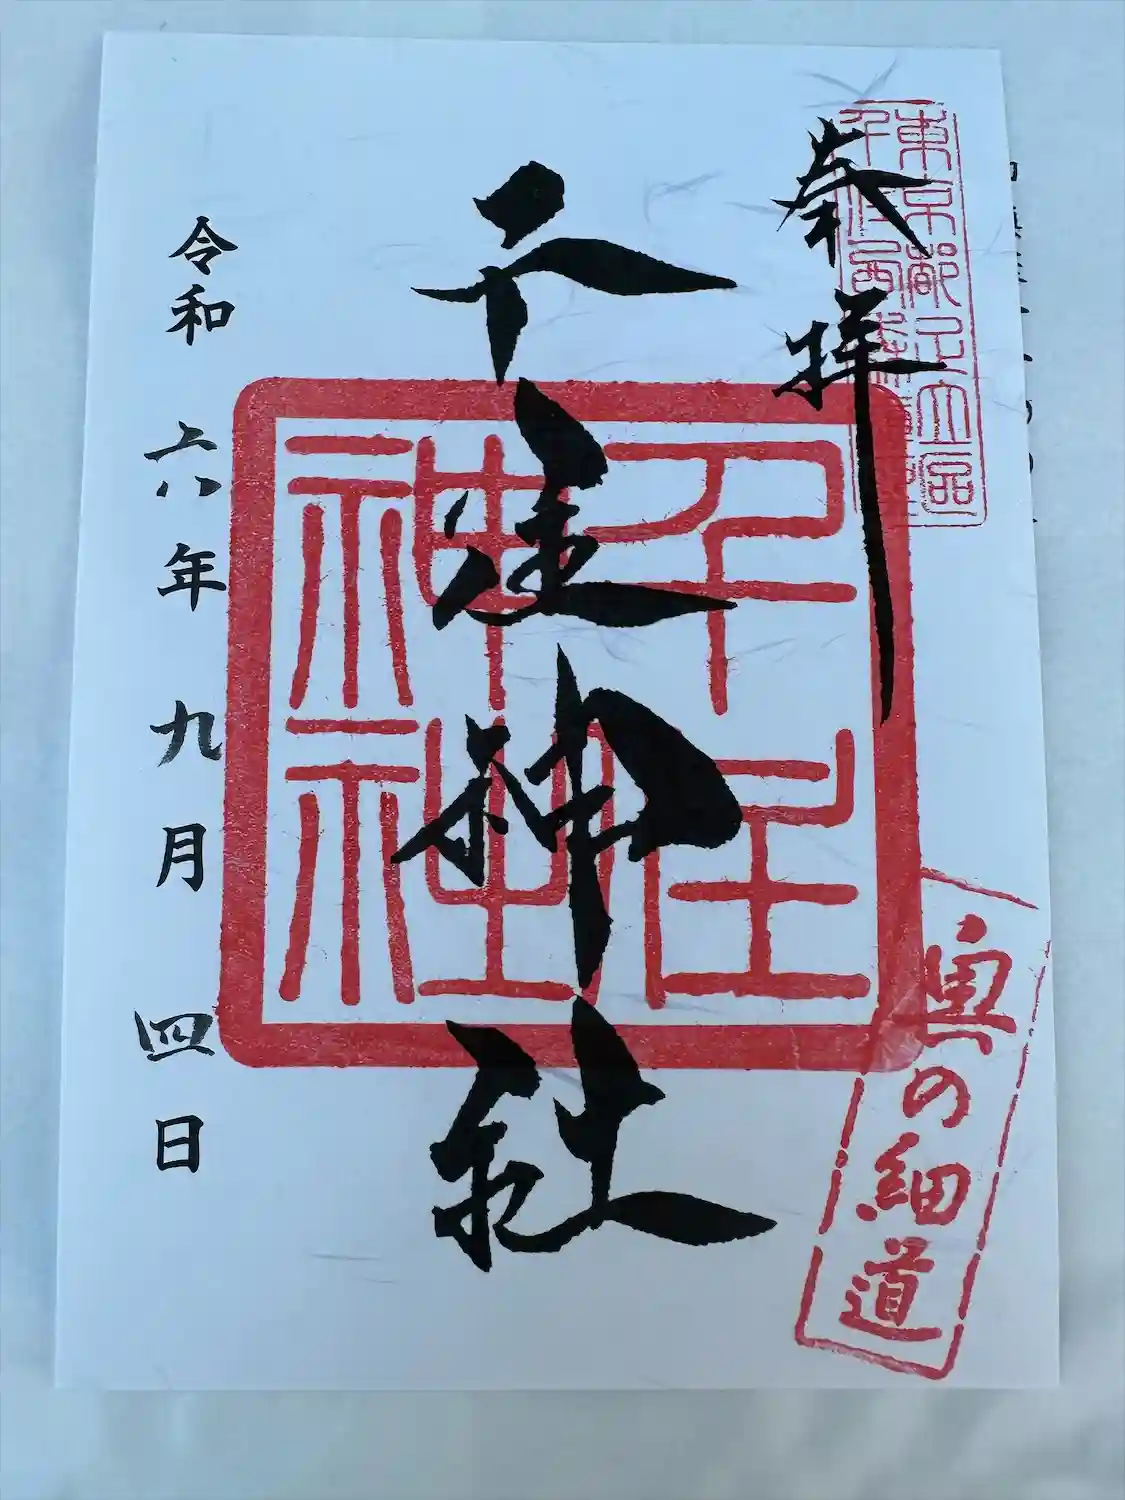 奉拝
東京都足立区
千住神社
千住
神社
令和 六年 九月 四日
奥の細道